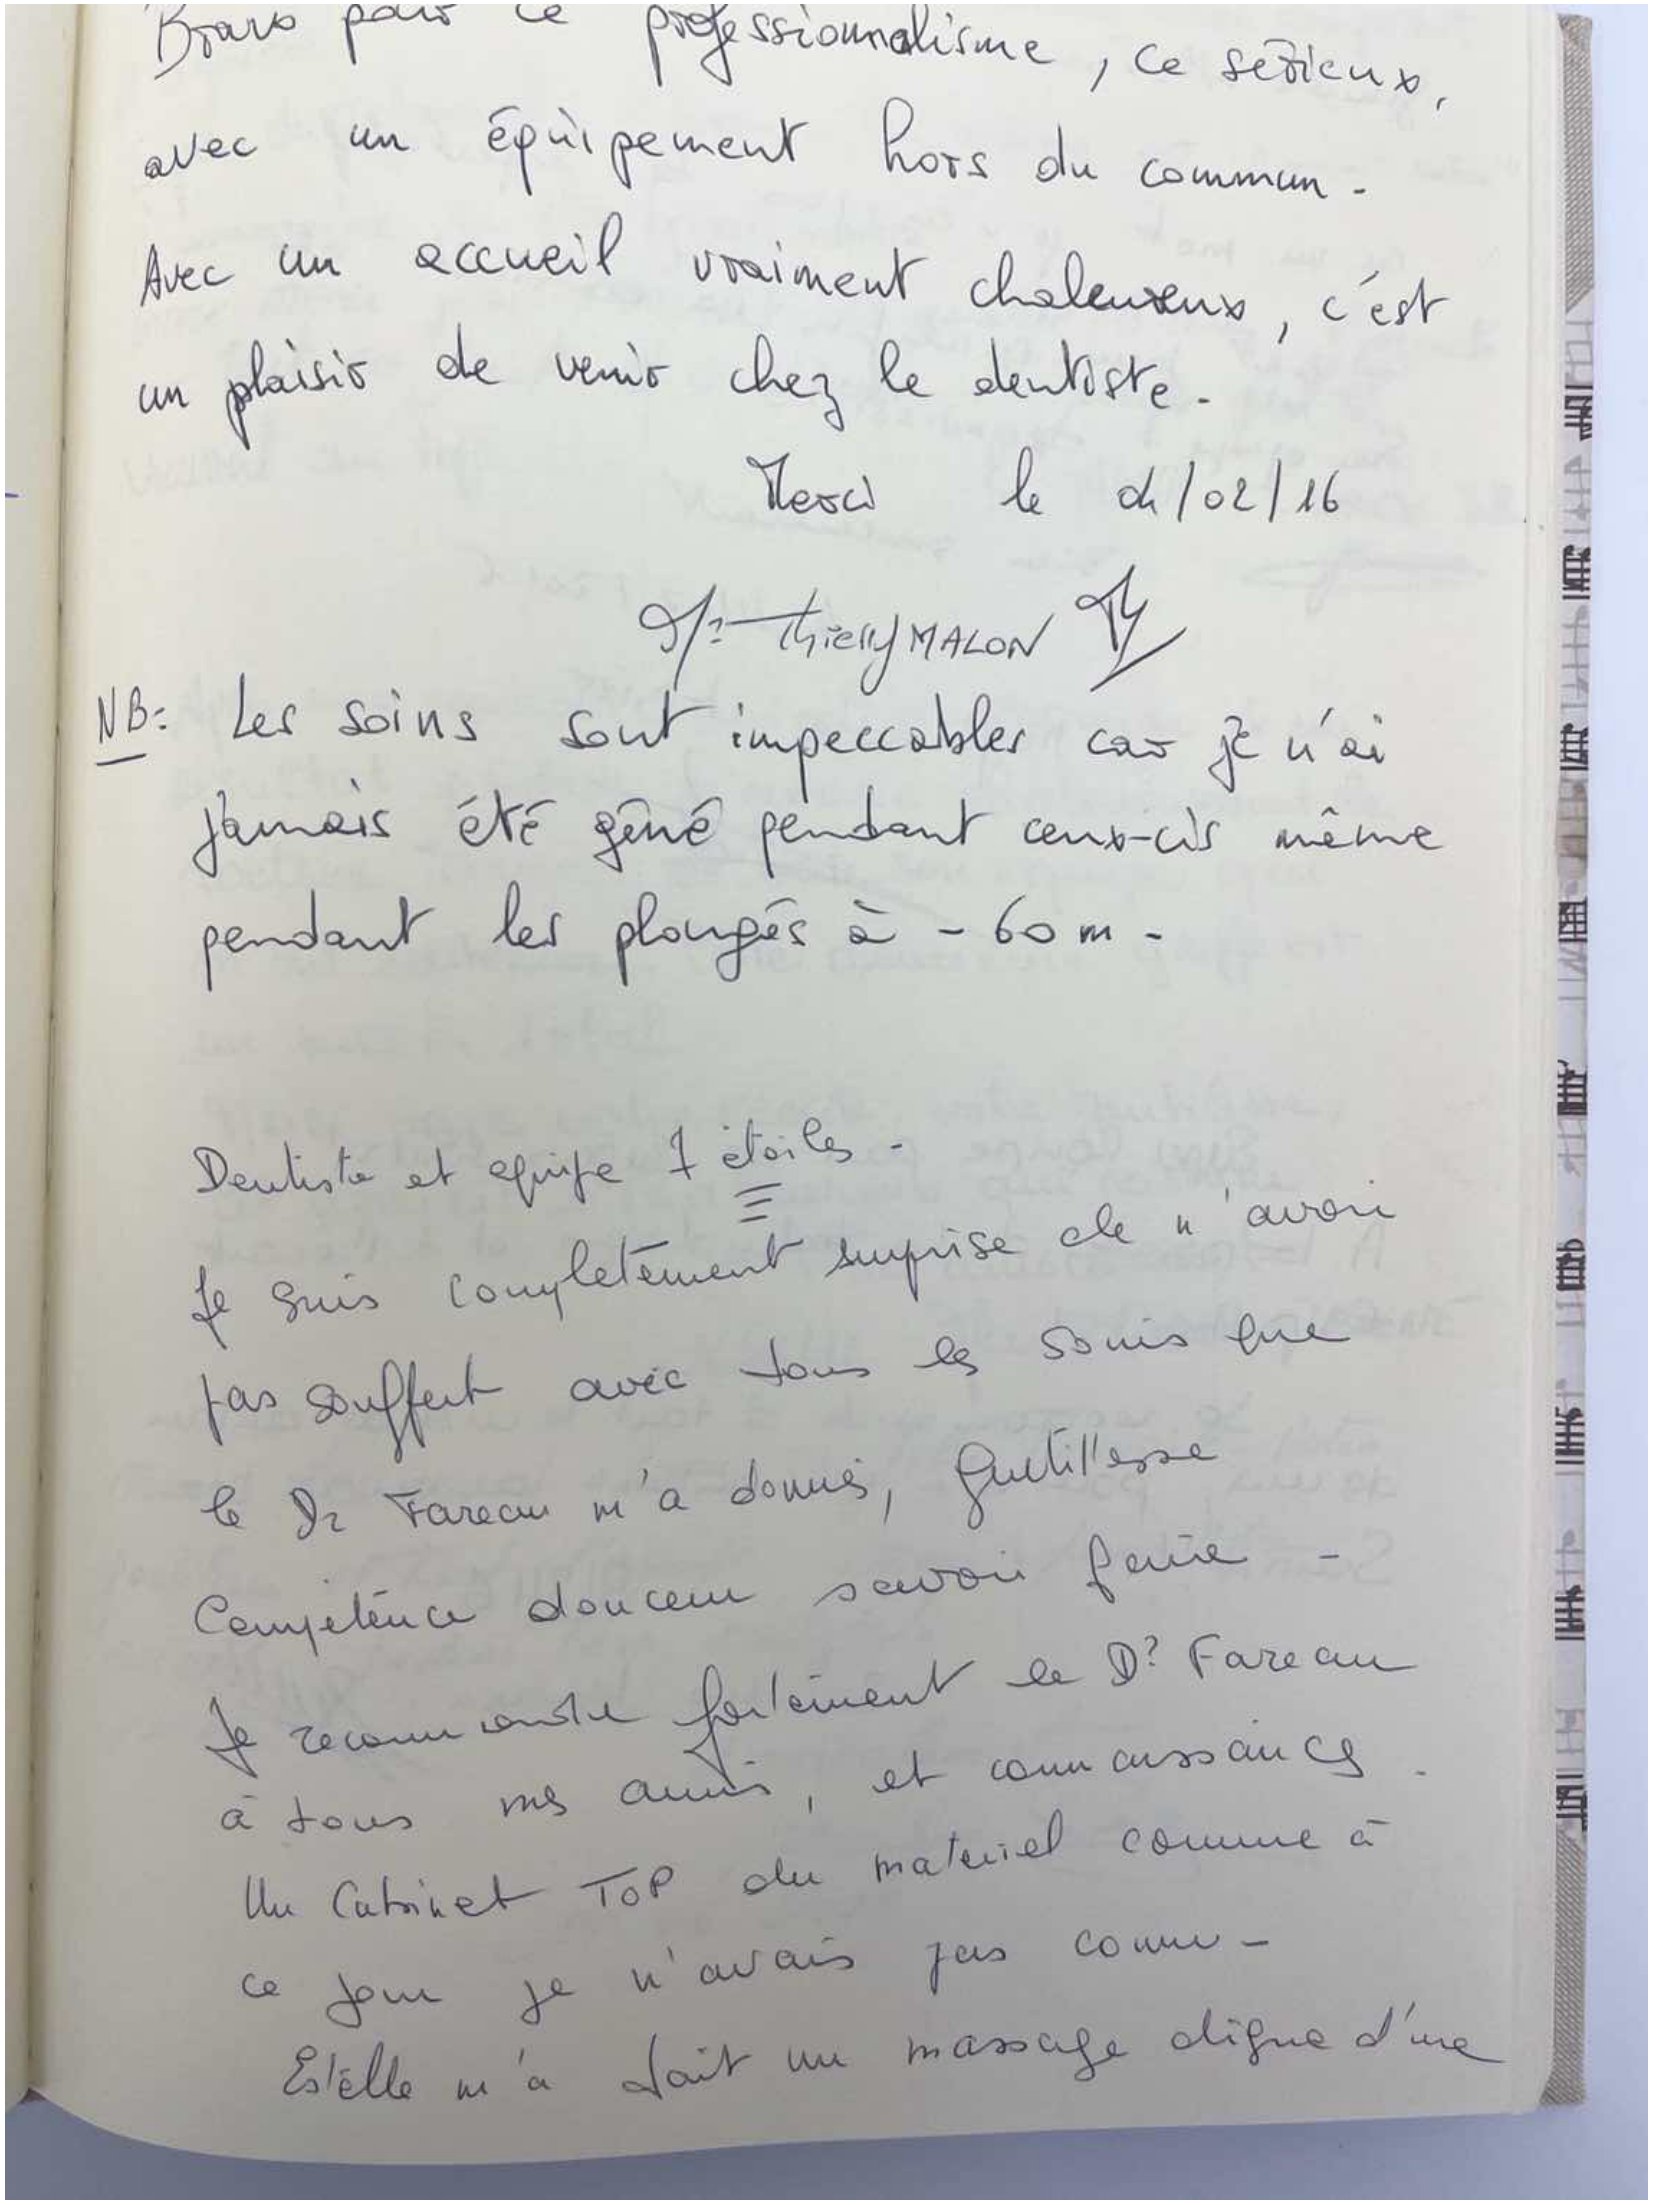 Bravo pour ce professionnalisme, ce sérieux,
avec un équipement hors du commun.
Avec un accueil vraiment chaleureux, c'est
un plaisir de venir chez le dentiste.
Merci le 01/02/16
Thierry MALON
NB: Les soins sont impeccables car je n'ai
jamais été gêné pendant ceux-cis même
pendant les plongés à -60m-
Dentiste et equipe 7 étoiles-
Je suis complètement surprise de n'avoir
pas souffert avec tous les soins que
le Dr Fareau m'a donnés, gentillesse
Compétence douceur savoir faire-
Je recommande fortement le Dr Fareau
à tous mes amis, et connaissances.
Un Cabinet TOP du materiel comme à
ce jour je n'avais pas connu-
Estelle m'a fait un massage digne d'une